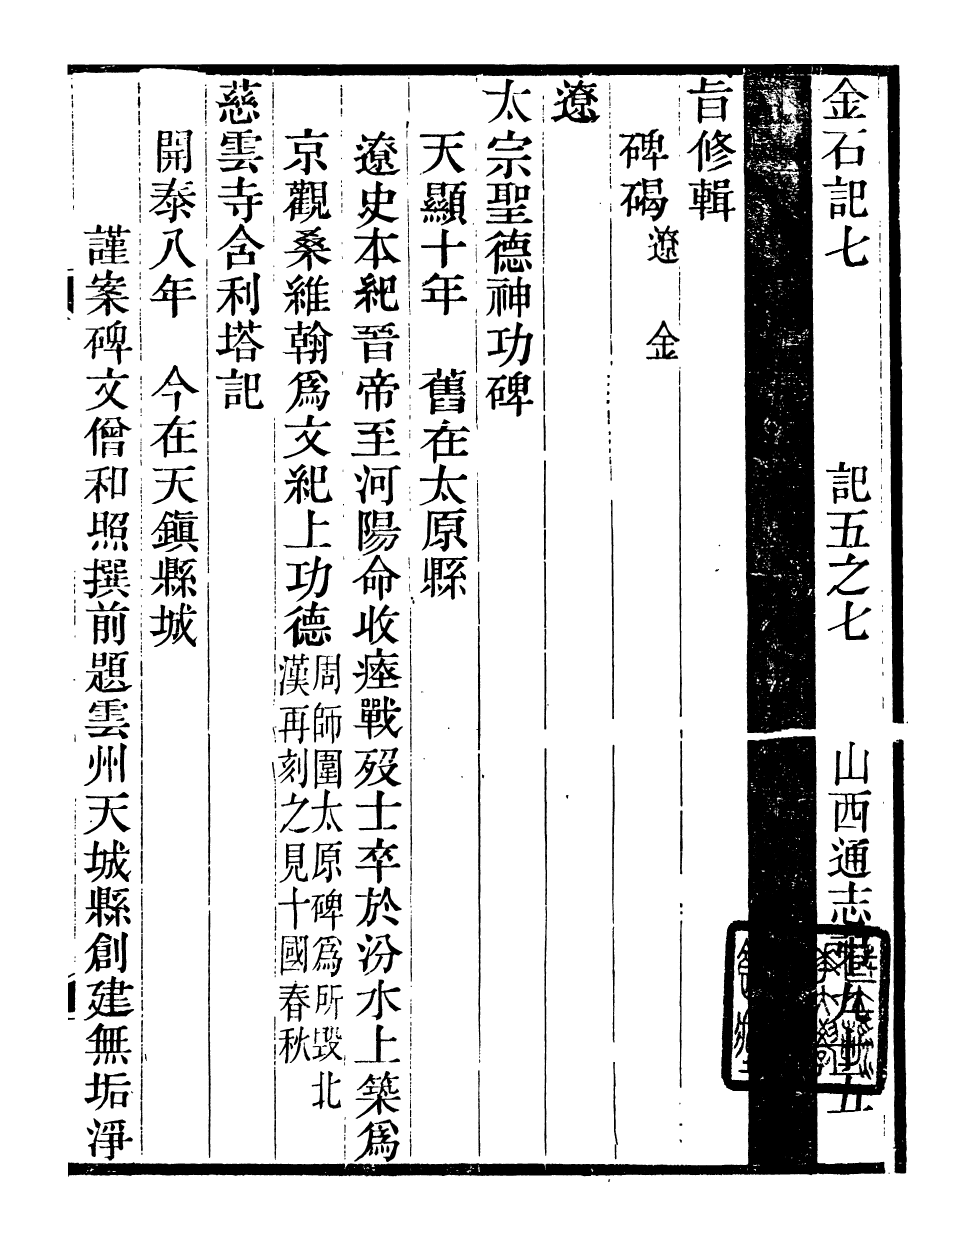 金石記七　記五之七　山西通志　九十五
旨修輯
碑碣遼　金
遼
太宗聖德神功碑
天顯十年　舊在太原縣
遼史本紀晉帝至河陽命收瘞戰歿士卒於汾水上築爲
京觀桑維翰爲文紀上功德周師圍太原碑爲所毀北
漢再刻之見十國春秋
慈雲寺舍利塔記
開泰八年　今在天鎮縣城
謹案碑文僧和照撰前題雲州天城縣創建無垢淨